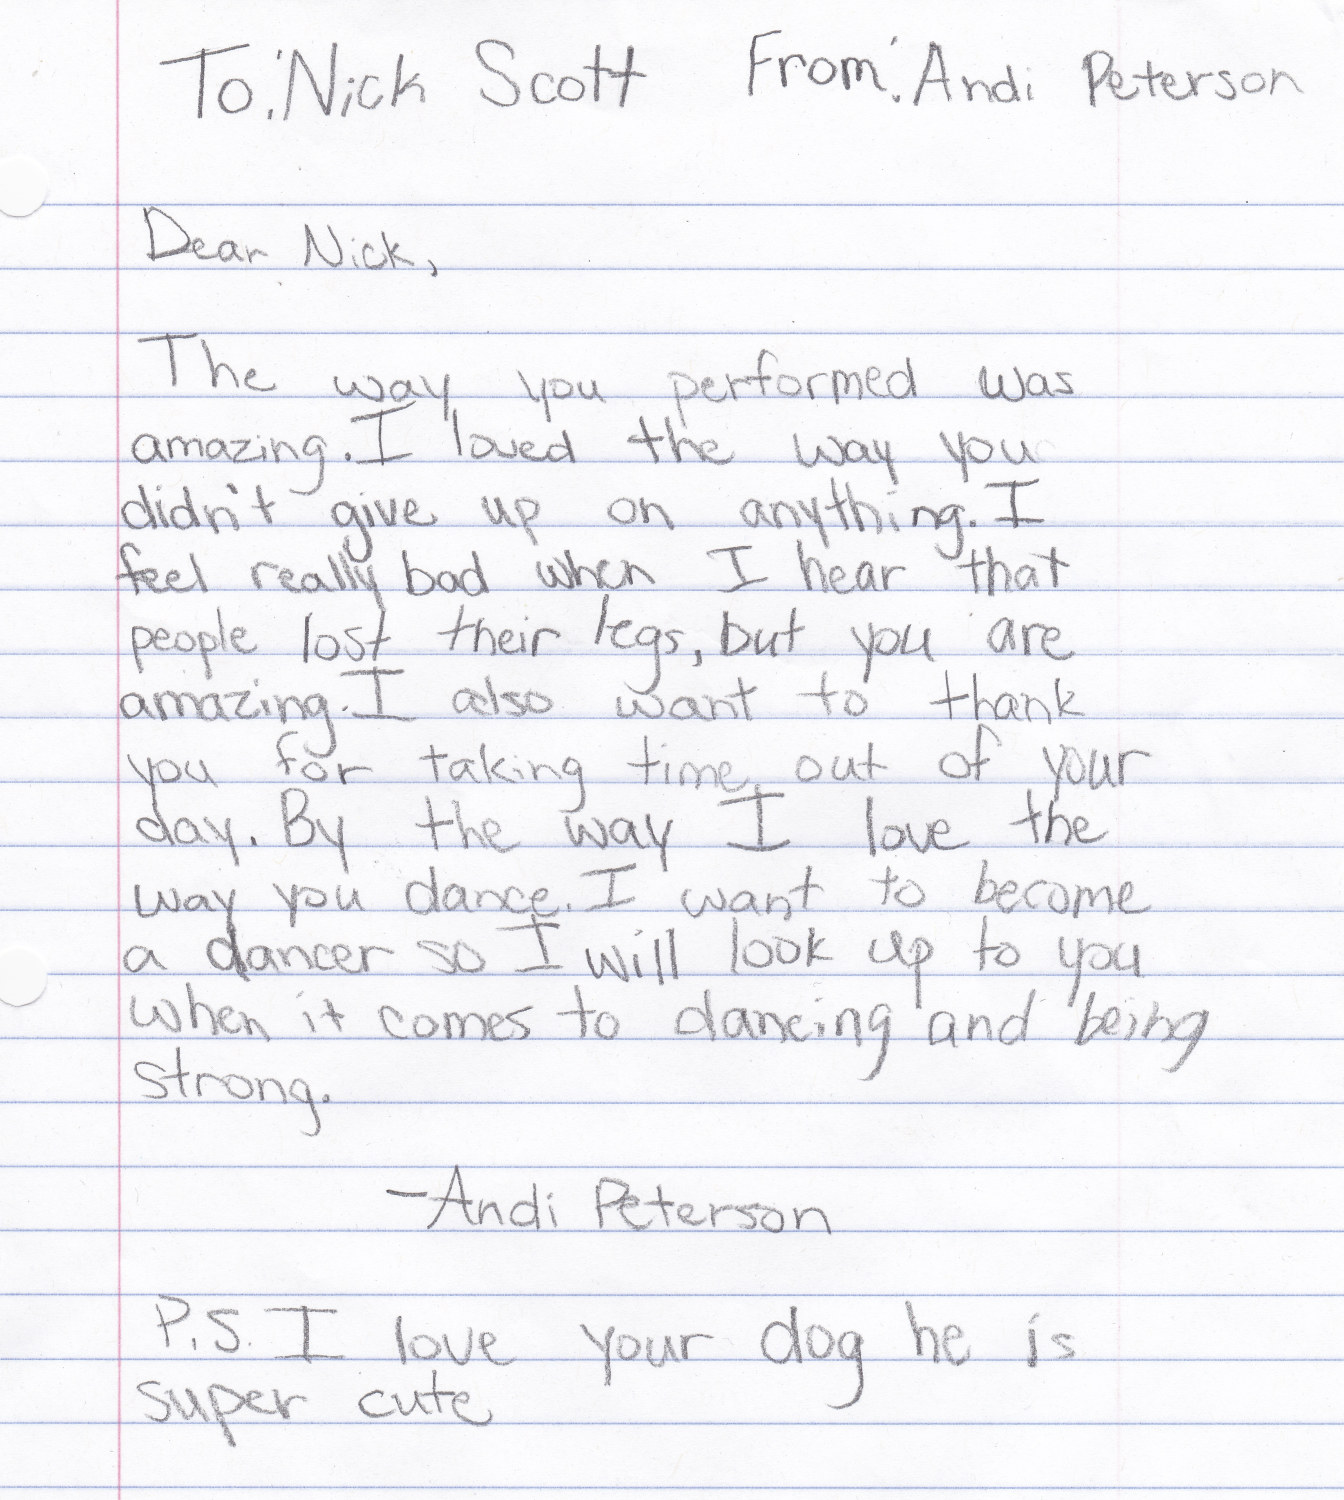 To: Nick Scott From: Andi Peterson
Dear Nick,
The way you performed was
amazing. I loved the way you
didn't give up on anything. I
feel really bad when I hear that
people lost their legs, but you are
amazing. I also want to thank
you for taking time out of your
day. By the way I love the
way you dance. I want to become
a dancer so I will look up to you
when it comes to dancing and being
strong.
-Andi Peterson
P.S. I love your dog he is
super cute